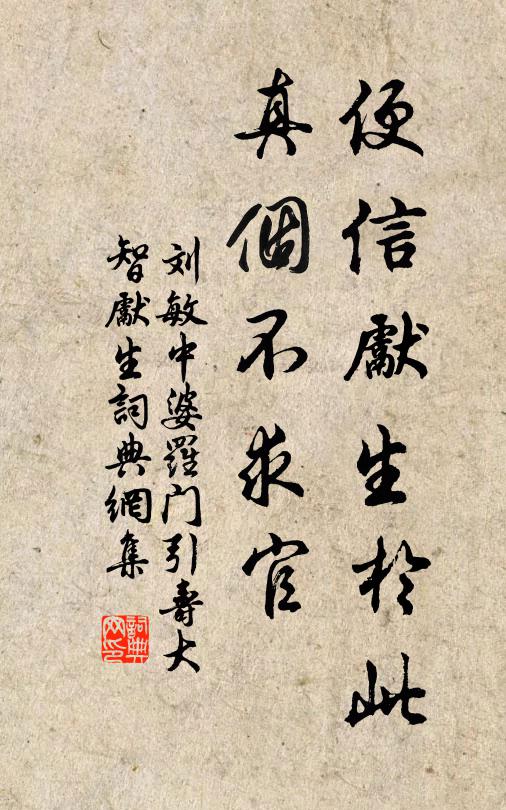 便信獻生於此
真個不求官
刘敏中婆羅门引壽大
智獻生詞典網集
詞典
网印